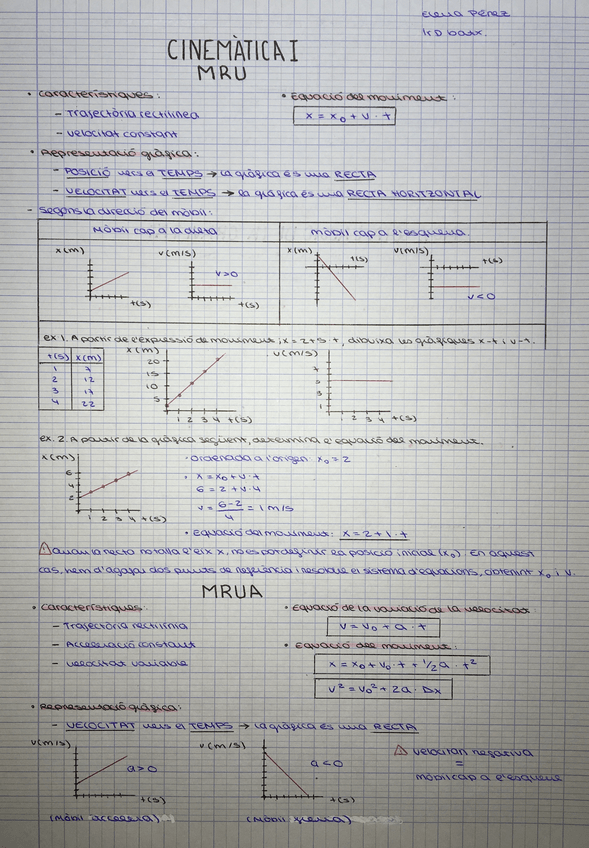 Elena Pérez
1r D batx.
CINEMÀTICA I
MRU
• Característiques:
– Trajectòria rectilínea
– Velocitat constant
• Equació del moviment:
x = x₀ + v · t
• Representació gràfica:
– POSICIÓ vers el TEMPS → la gràfica és una RECTA
– VELOCITAT vers el TEMPS → la gràfica és una RECTA HORITZONTAL
– Segons la direcció del mòbil:
Mòbil cap a la dreta
Mòbil cap a l'esquerra
x(m)
t(s)
v(m/s)
v>0
t(s)
x(m)
t(s)
v(m/s)
t(s)
v<0
ex 1. A partir de l'expressió de moviment, x = 2+5·t, dibuixa les gràfiques x-t i v-t.
t(s) x(m)
1 7
2 12
3 17
4 22
x(m)
20
15
10
5
1 2 3 4 t(s)
v(m/s)
7
5
3
1
1 2 3 4 t(s)
ex. 2. A partir de la gràfica següent, determina l'equació del moviment.
x(m)
6
4
2
1 2 3 4 t(s)
· Ordenada a l'origen: x₀ = 2
· x = x₀ + v · t
6 = 2 + v · 4
v = 6-2/4 = 1 m/s
· Equació del moviment: x = 2 + 1 · t
⚠ Quan la recta no talla l'eix x, no es pot definir la posició inicial (x₀). En aquest
cas, hem d'agafar dos punts de referència i resoldre el sistema d'equacions, obtenint x₀ i v.
MRUA
• Característiques:
– Trajectòria rectilínia
– Acceleració constant
– Velocitat variable
• Equació de la variació de la velocitat:
v = v₀ + a · t
• Equació del moviment:
x = x₀ + v₀ · t + 1/2 a · t²
v² = v₀² + 2a · Δx
• Representació gràfica:
– VELOCITAT vers el TEMPS → la gràfica és una RECTA
v(m/s)
a>0
t(s)
(Mòbil accelera)
v(m/s)
a<0
t(s)
(Mòbil frena)
⚠ velocitat negativa
=
mòbil cap a l'esquerra